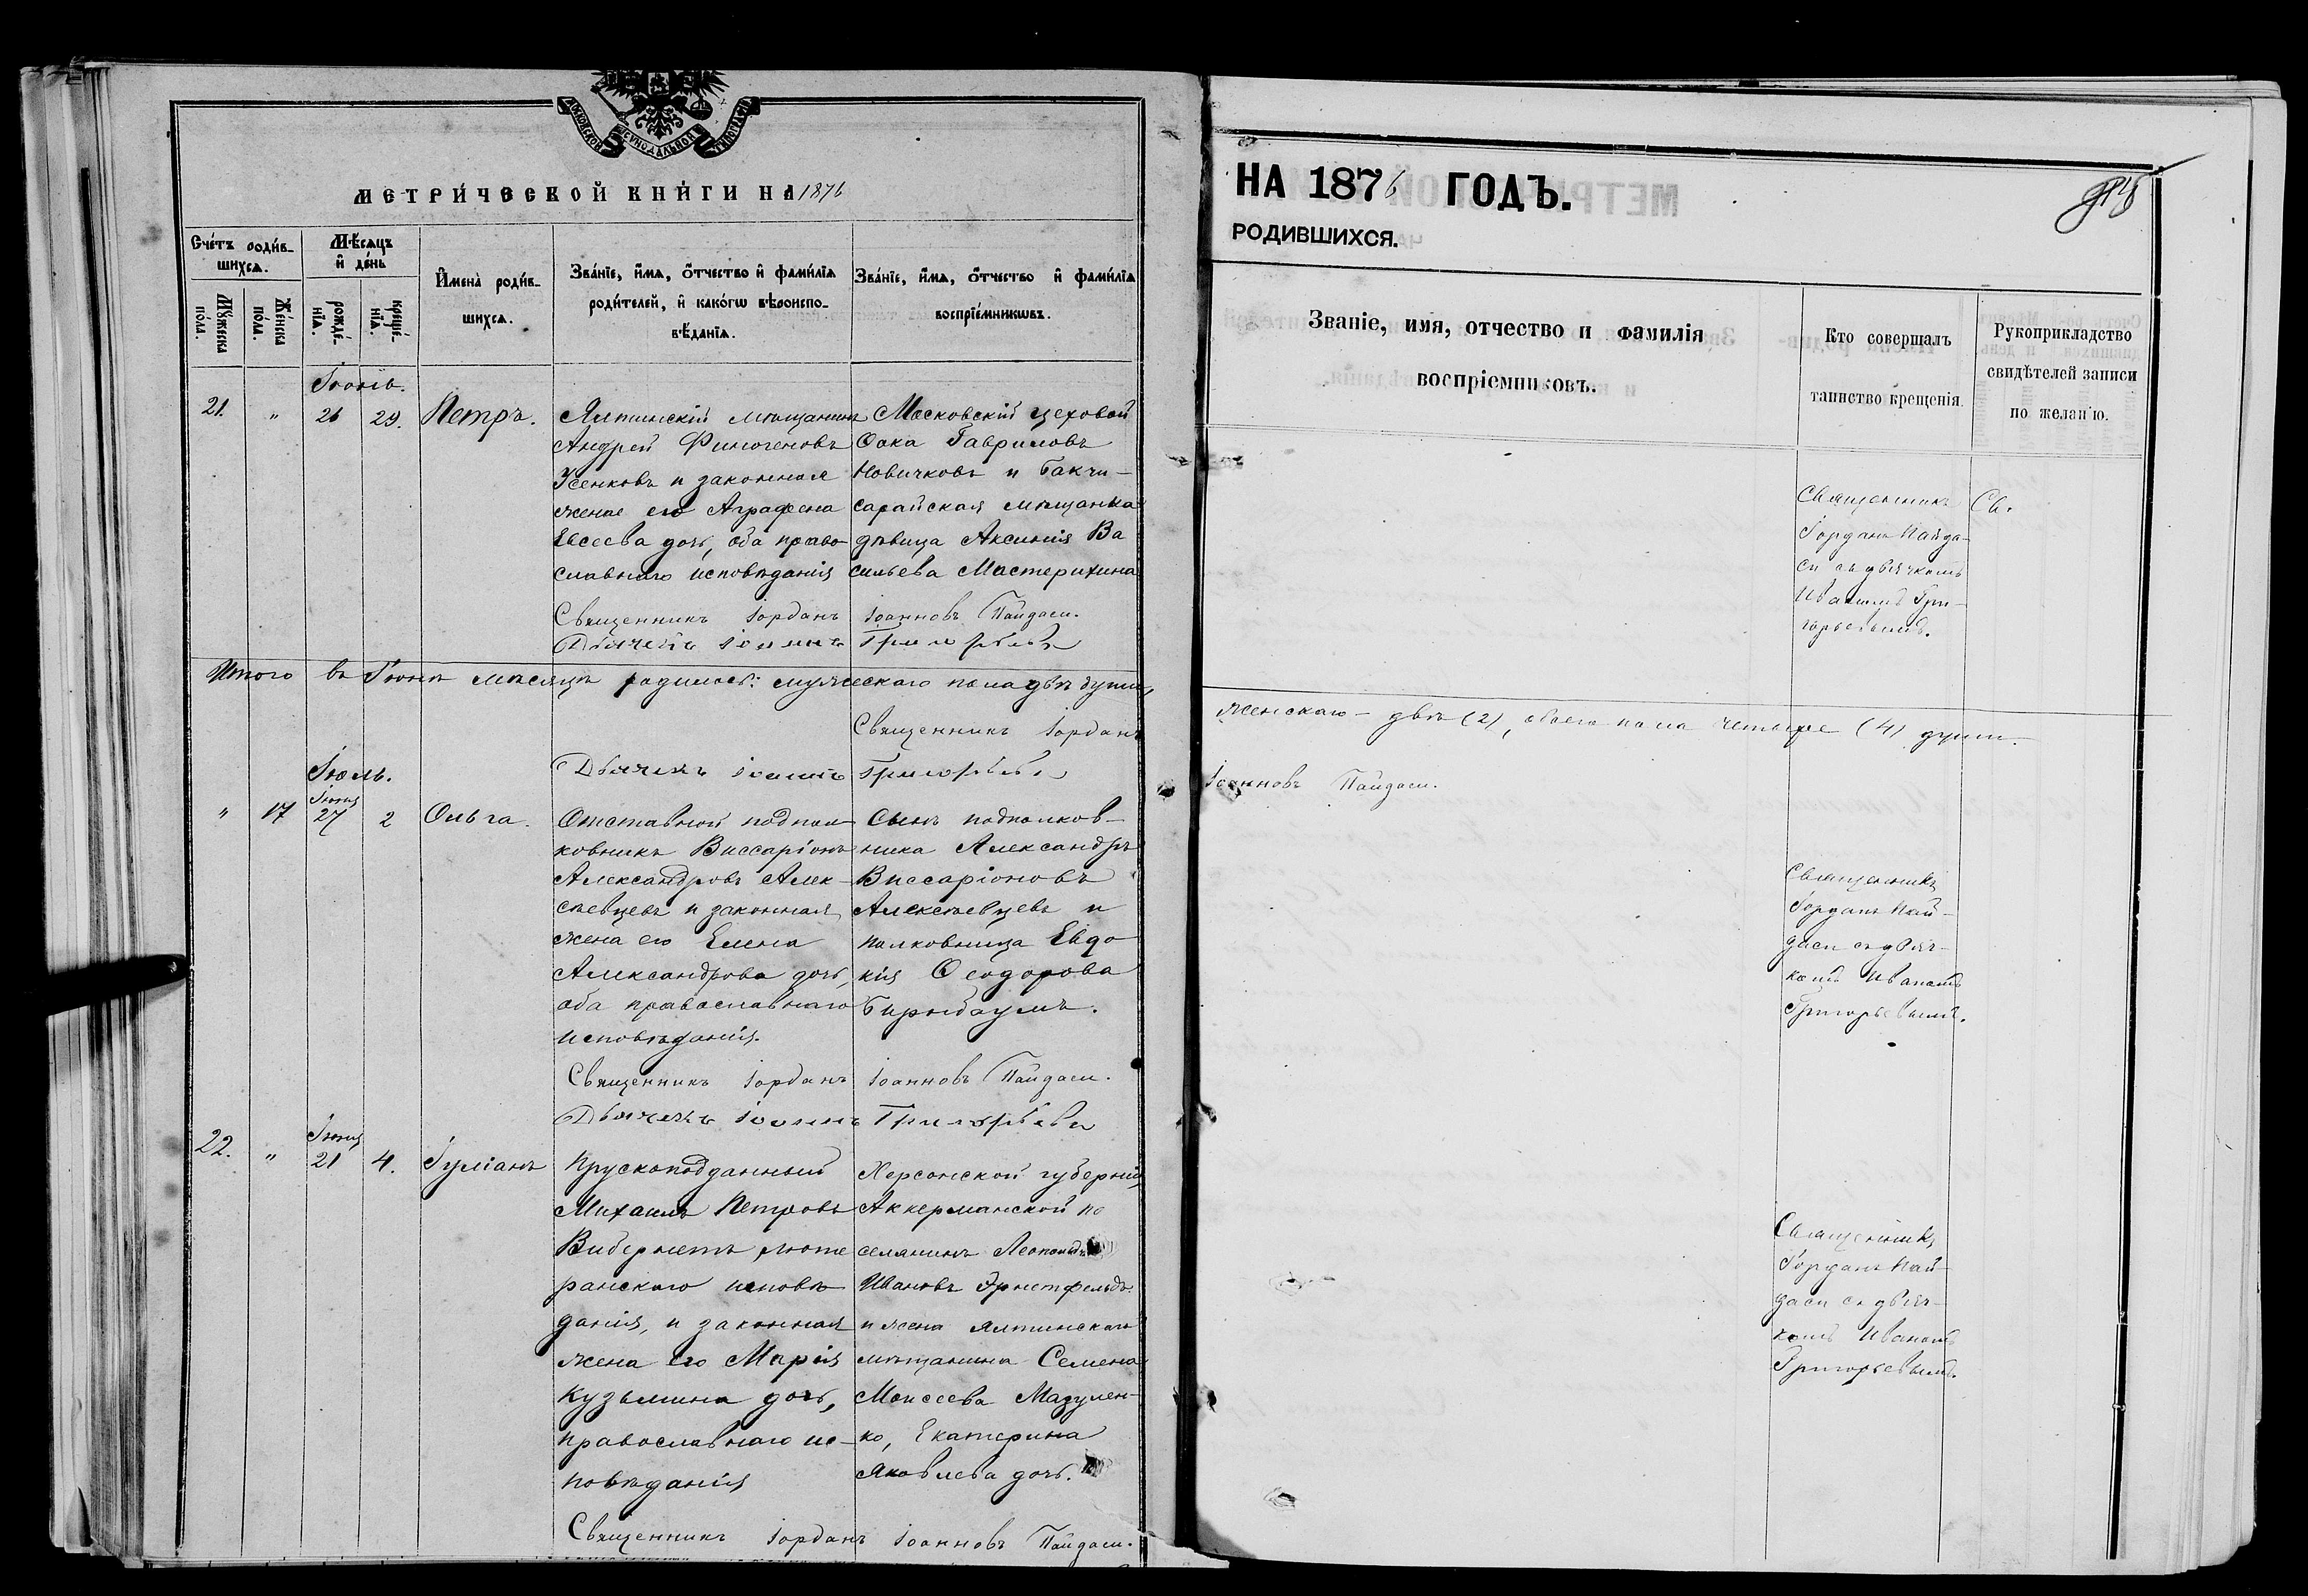 МОСКОВСКОЙ СѴНОДАЛЬНОЙ ТИПОГРАФІИ
МЕТРИ́ЧЕСКОЙ КНИ́ГИ НА 1876
Сче́тъ роди́в-
шихсѧ.
Мѣ́сѧцъ
и҆ де́нь
Мꙋ́жеска по́ла.
Же́нска по́ла.
рожде́-
нїѧ.
креще́-
нїѧ.
И҆мена̀ роди́в-
шихсѧ.
Зва́нїе, и҆́мѧ, ѻ҆́тчество и҆ фами́лїѧ
роди́телей, и҆ како́гѡ вѣроиспо-
вѣ́данїѧ.
Зва́нїе, и҆́мѧ, ѻ҆́тчество и҆ фами́лїѧ
воспрїе́мникѡвъ.
Іюнь.
21. " 26 29. Петръ.
Ялтинскій мѣщанинъ
Андрей Финогеновъ
Усенковъ и законная
жена его Аграфена
Евсеева дочь, оба право
славнаго исповѣданія
Московскій цеховой
Ѳока Гавриловъ
Новичковъ и Бакчи-
сарайская мѣщанка
дѣвица Аксинія Ва
сильева Мастерихина
Священникъ Іорданъ Іоанновъ Пайдаси.
Дьячекъ Іоаннъ Григорьевъ
Итого въ Іюнѣ мѣсяцѣ родилось: мужескаго пола двѣ души,
Священникъ Іорданъ
Дьячекъ Іоаннъ Григорьевъ
Іюль.
" 17 Іюня 27 2 Ольга.
Отставной подпол-
ковникъ Виссаріонъ
Александровъ Алек-
сѣевцевъ и законная
жена его Елена
Александрова дочь,
оба православнаго
исповѣданія.
Сынъ подполков-
ника Александръ
Виссаріоновъ
Алексѣевцевъ и
полковница Евдо
кія Ѳеодорова
Бирнбаумъ.
Священникъ Іорданъ Іоанновъ Пайдаси.
Дьячекъ Іоаннъ Григорьевъ
22. " Іюня 21 4. Іуліанъ
Прускоподданный
Михаилъ Петровъ
Вибернетъ, люте
ранскаго исповѣ
данія, и законная
жена его Марія
Кузьмина дочь,
православнаго ис-
повѣданія
Херсонской губерніи,
Аккерманской по
селянинъ Леопольдъ
Ивановъ Эрнстфельдъ
и жена ялтинскаго
мѣщанина Семена
Моисеева Мазулен-
ко, Екатерина
Яковлева дочь.
Священникъ Іорданъ Іоанновъ Пайдаси.
НА 1876 ГОДЪ.
РОДИВШИХСЯ.
Званіе, имя, отчество и фамилія
воспріемниковъ.
Кто совершалъ
таинство крещенія.
Рукоприкладство
свидѣтелей записи
по желанію.
Священникъ
Іорданъ Пайда-
си съ дьячкомъ
Иваномъ Гри-
горьевымъ.
Св.
женскаго - двѣ (2), обоего пола четыре (4) души.
Іоанновъ Пайдаси.
Священникъ
Іорданъ Пай-
даси съ дьяч-
комъ Иваномъ
Григорьевымъ.
Священникъ
Іорданъ Пай-
даси съ дьяч-
комъ Иваномъ
Григорьевымъ.